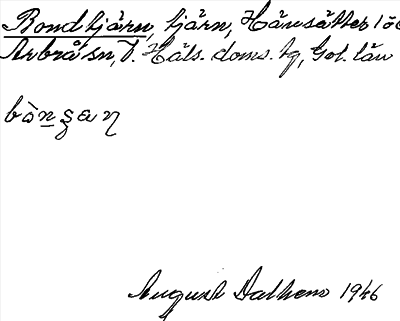 Bondtjärn, tjärn, Hänsätter
Arbrå sn, V. Häls. doms. tg, Gel. län
August Dalhem 1946